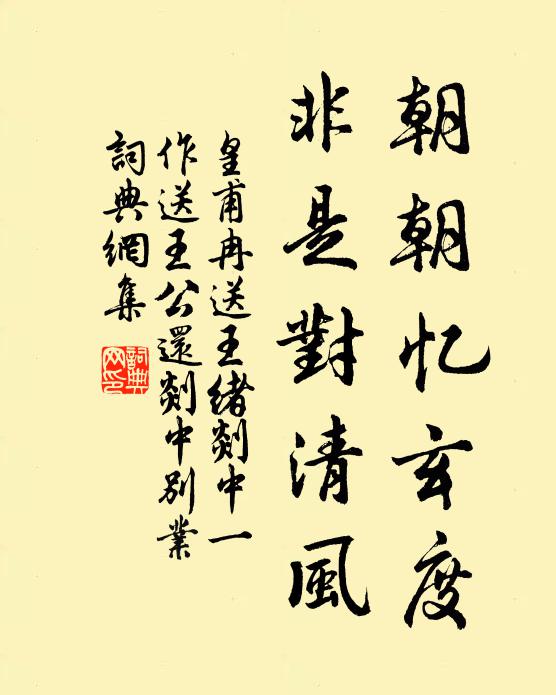 朝朝忆玄度
非是對清風
皇甫冉送王緒剡中一
作送王公還剡中別業
詞典網集
詞典
网印